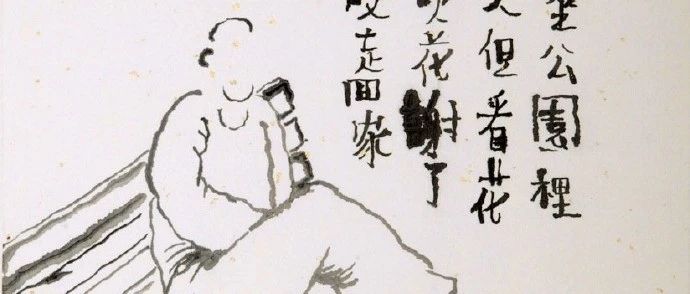 坐公園裡
但看花
花謝了
走回家